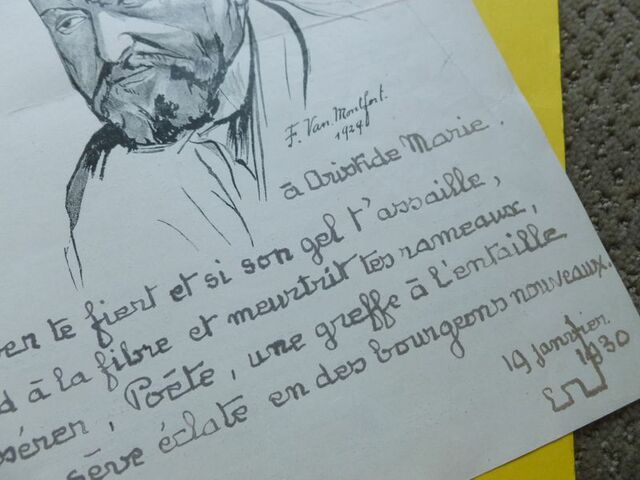 F. Van Montfort.
1929
à Aristide Marie.
te fiert et si son gel t'assaille,
d à la fibre et meurtrit tes rameaux,
sérer, Poète, une greffe à l'entaille
sève éclate en des bourgeons nouveaux.
19 janvier
1930